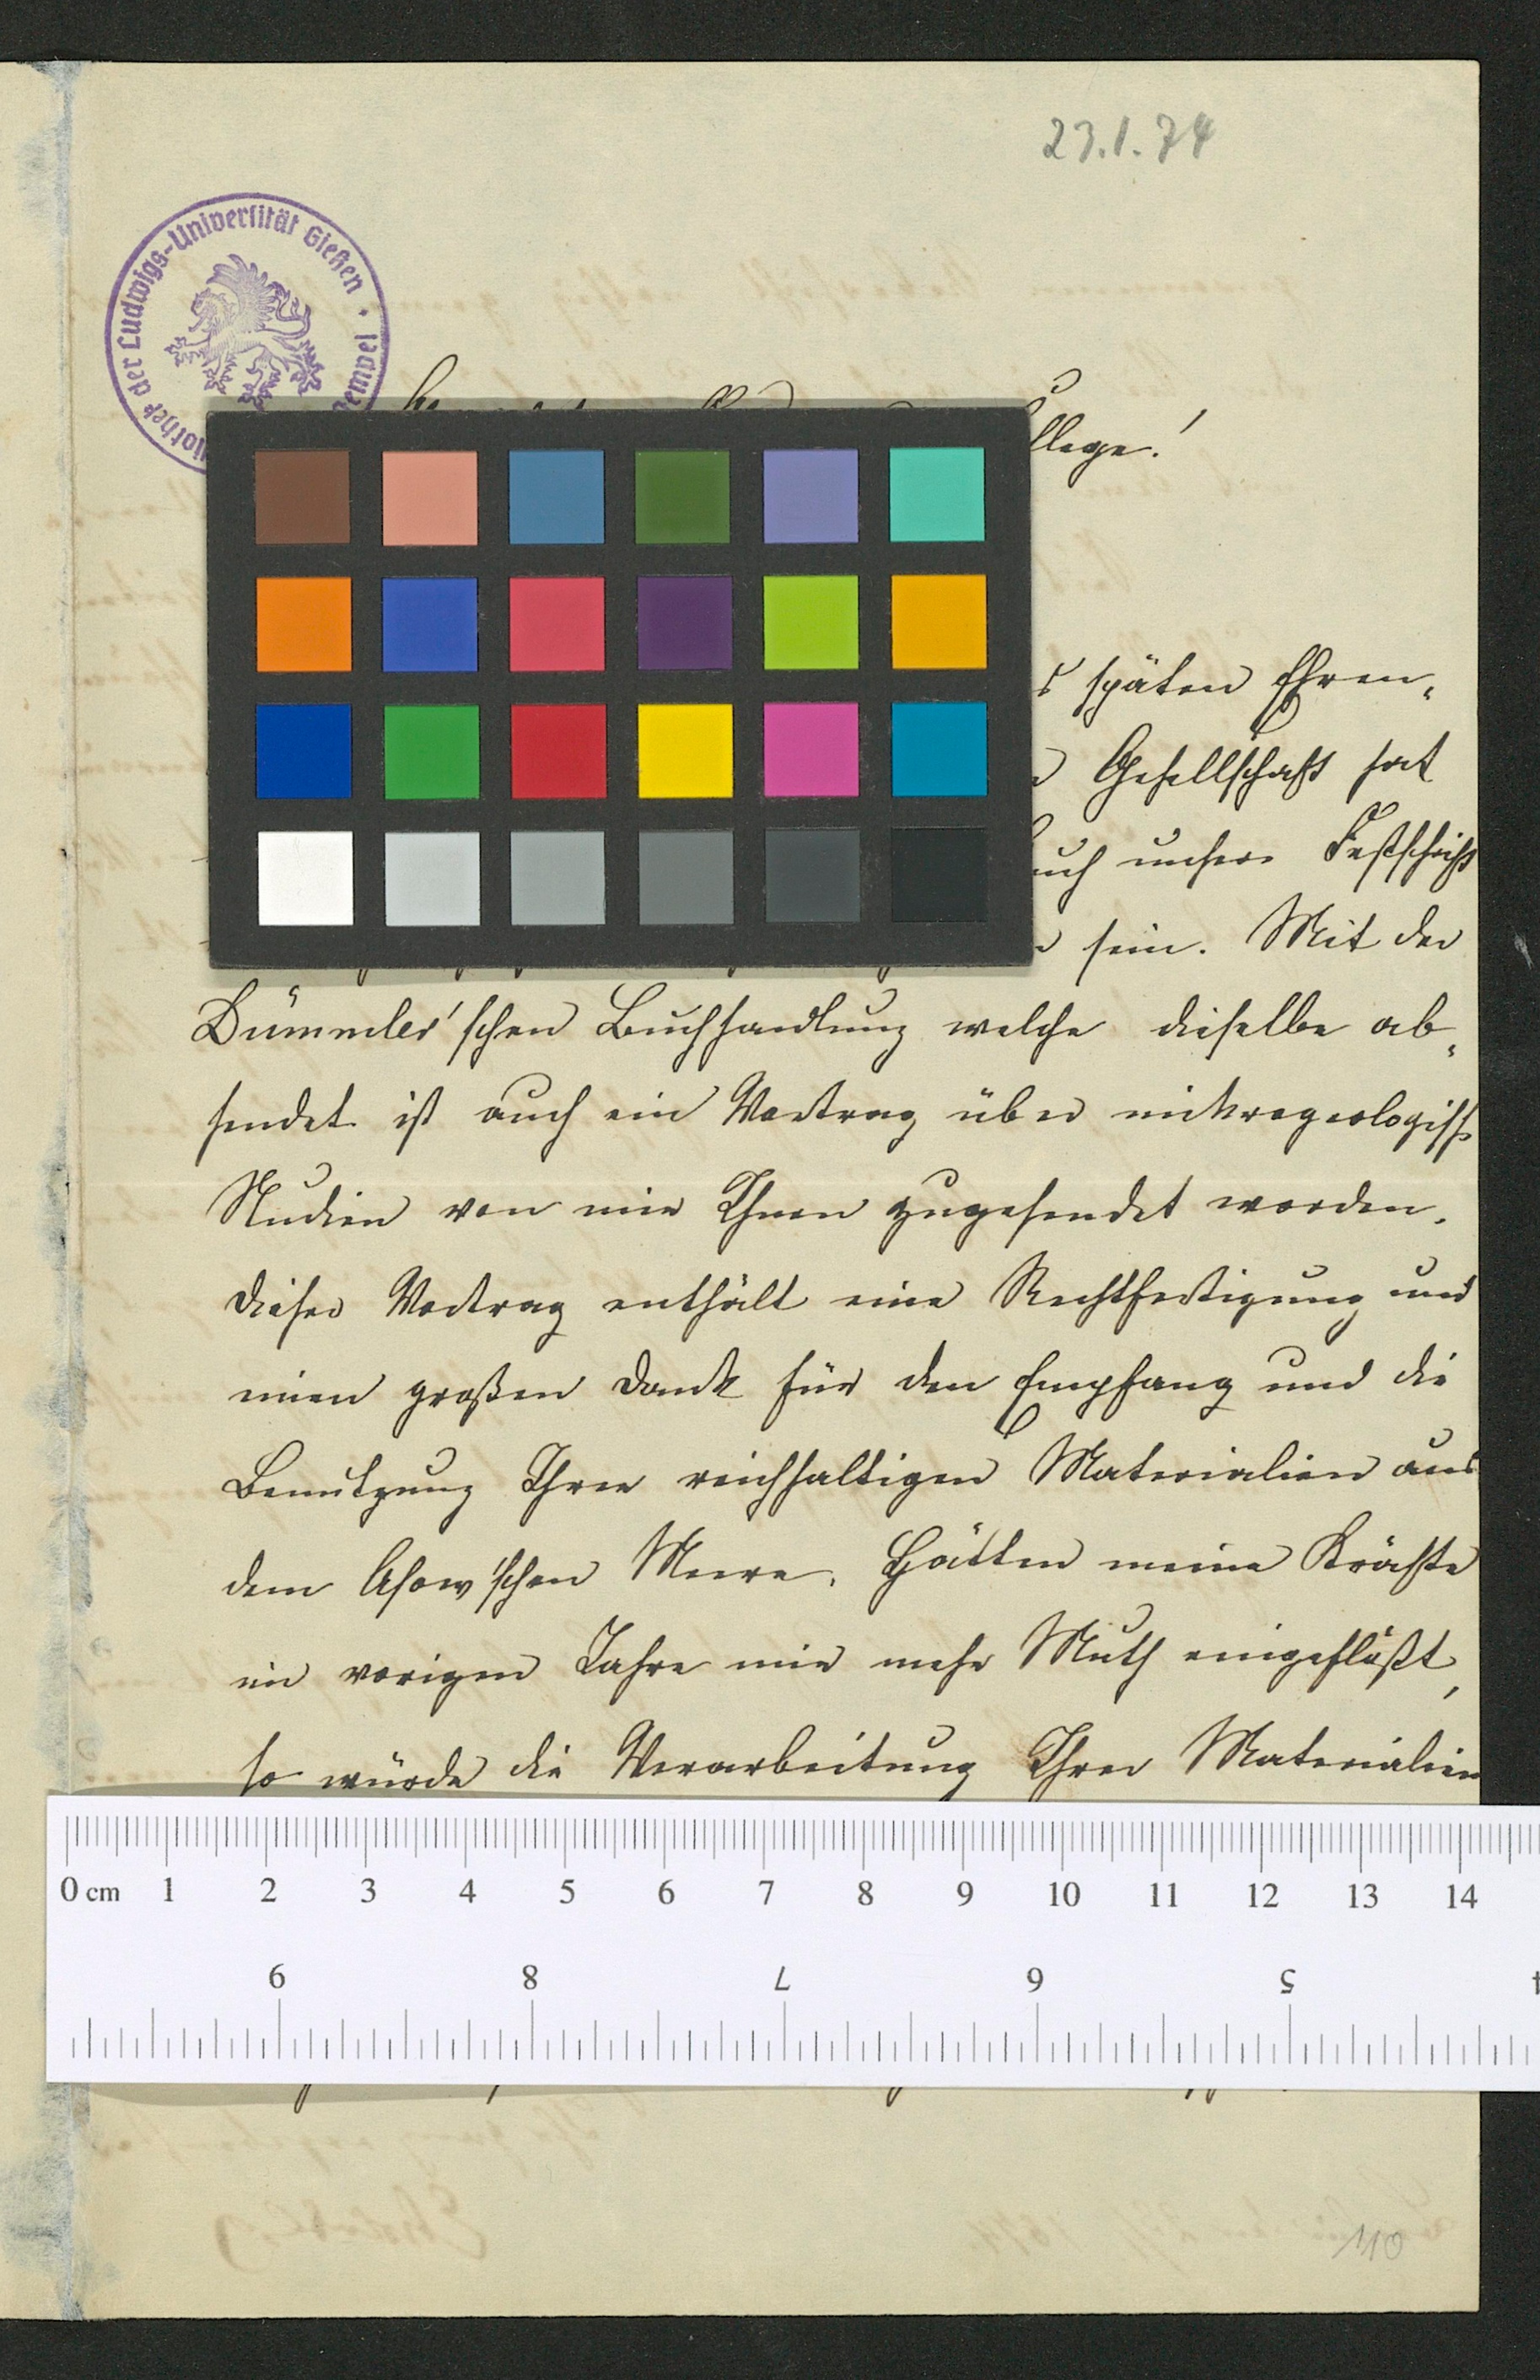 23.1.74
der Ludwigs-Universität Gießen
llege!
späten Ehren-
Gesellschaft hat
unsere Festschrift
sein. Mit der
Dümmler'schen Buchhandlung welche dieselbe ab-
sendet ist auch ein Vortrag über mikrogeologische
Studien von mir Ihnen zugesendet worden.
Dieser Vortrag enthält eine Rechtfertigung und
meinen großen Dank für den Empfang und die
Benutzung Ihrer reichhaltigen Materialien aus
dem Asow'schen Meere. Hätten meine Kräfte
im vorigen Jahre mir mehr Muth eingeflößt,
so würde die Verarbeitung Ihrer Materialien
0 cm 1 2 3 4 5 6 7 8 9 10 11 12 13 14
9 8 7 6 5
110